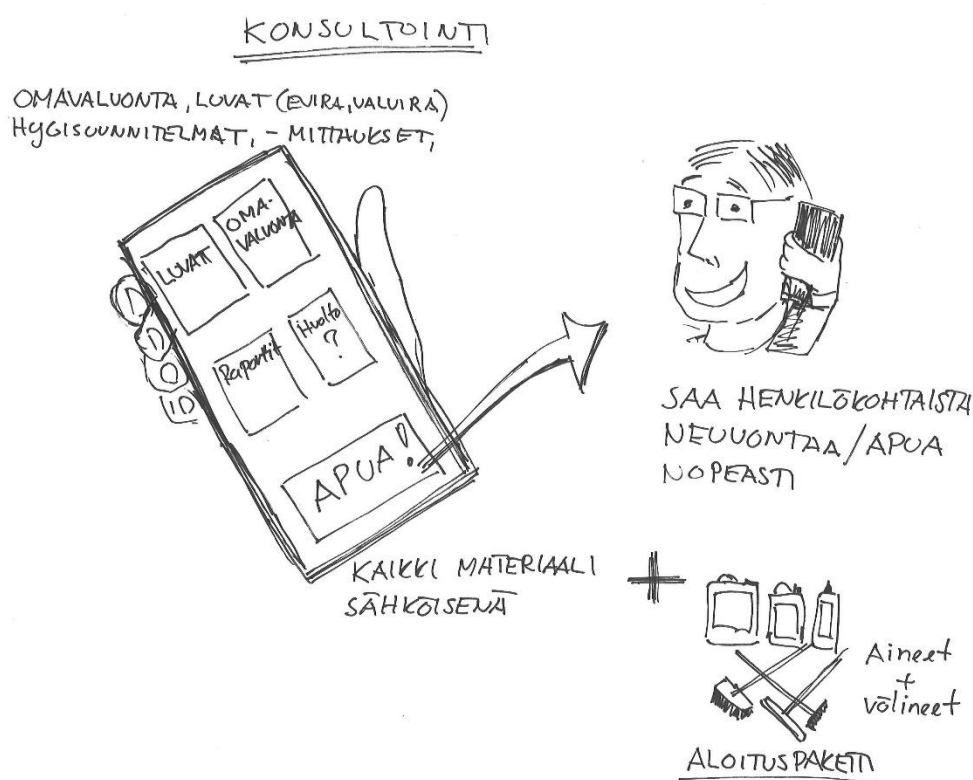 KONSULTOINTI
OMAVALVONTA, LUVAT (EVIRA, VALVIRA)
HYGISUUNNITELMAT, - MITTAUKSET,
LUVAT
OMA-
VALVONTA
Raportit
Huolto
?
APUA!
SAA HENKILÖKOHTAISTA
NEUVONTAA/APUA
NOPEASTI
KAIKKI MATERIAALI
SÄHKÖISENÄ
+
Aineet
+
välineet
ALOITUSPAKETTI